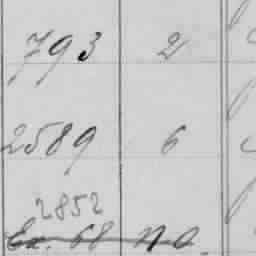 793 2
2589 6
2852
Ex. 68 no.